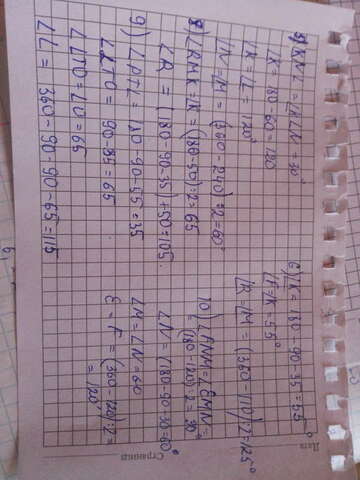 5) ∠KNL = ∠KLN + 30°
∠K = 180 - 60 = 120
∠K = ∠L = 120°
∠N = ∠M = (360 - 240) : 2 = 60°
8) ∠RMK = ∠K = (180 - 50) : 2 = 65
∠R = (180 - 90 - 35) + 50 = 105
9) ∠PTL = 180 - 90 - 55 = 35
∠LTO = 90 - 35 = 65
∠LTO = ∠O = 65
∠L = 360 - 90 - 90 - 65 = 115
6) ∠K = 180 - 90 - 35 = 55°
∠F = ∠K = 55°
∠R = ∠M = (360 - 110) : 2 = 125°
10) ∠FNM = ∠EMN =
= (180 - 120) : 2 = 30°
∠N = (180 - 90 - 30 = 60°
∠M = ∠N = 60
E = F = (360 - 120) : 2 =
= 120°
Дата
Страница